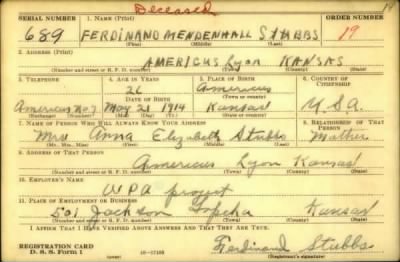 Deceased
14
SERIAL NUMBER 1. NAME (Print) ORDER NUMBER
689 FERDINAND MENDENHALL STUBBS 19
(First) (Middle) (Last)
2. ADDRESS (Print)
AMERICUS Lyon KANSAS
(Number and street or R. F. D. number) (Town) (County) (State)
3. TELEPHONE 4. AGE IN YEARS 5. PLACE OF BIRTH 6. COUNTRY OF CITIZENSHIP
26 Americus
DATE OF BIRTH (Town or county)
Americus No. 7 May 21 1914 Kansas U.S.A.
(Exchange) (Number) (Mo.) (Day) (Yr.) (State or country)
7. NAME OF PERSON WHO WILL ALWAYS KNOW YOUR ADDRESS 8. RELATIONSHIP OF THAT PERSON
Mrs Anna Elizabeth Stubbs Mother
(Mr., Mrs., Miss) (First) (Middle) (Last)
9. ADDRESS OF THAT PERSON
Americus Lyon Kansas
(Number and street or R. F. D. number) (Town) (County) (State)
10. EMPLOYER'S NAME
WPA project
11. PLACE OF EMPLOYMENT OR BUSINESS
501 Jackson Topeka Kansas
(Number and street or R. F. D. number) (Town) (County) (State)
I AFFIRM THAT I HAVE VERIFIED ABOVE ANSWERS AND THAT THEY ARE TRUE.
REGISTRATION CARD
D. S. S. Form 1
Ferdinand Stubbs
(Registrant's signature)